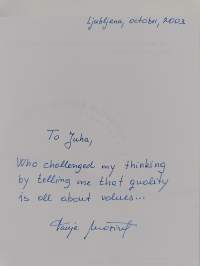 Ljubljana, october, 2003
To Juha,
Who challenged my thinking
by telling me that quality
is all about values...